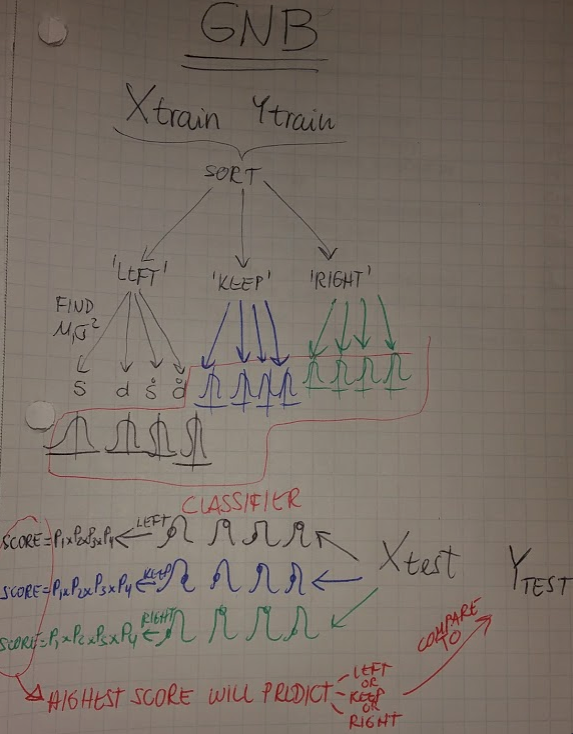 GNB
Xtrain Ytrain
SORT
'LEFT' 'KEEP' 'RIGHT'
FIND
μ,σ²
s d ṡ ḋ
CLASSIFIER
SCORE=P₁xP₂xP₃xP₄ LEFT
SCORE=P₁xP₂xP₃xP₄ KEEP
SCORE=P₁xP₂xP₃xP₄ RIGHT
Xtest
YTEST
COMPARE
TO
HIGHEST SCORE WILL PREDICT
LEFT
OR
KEEP
OR
RIGHT